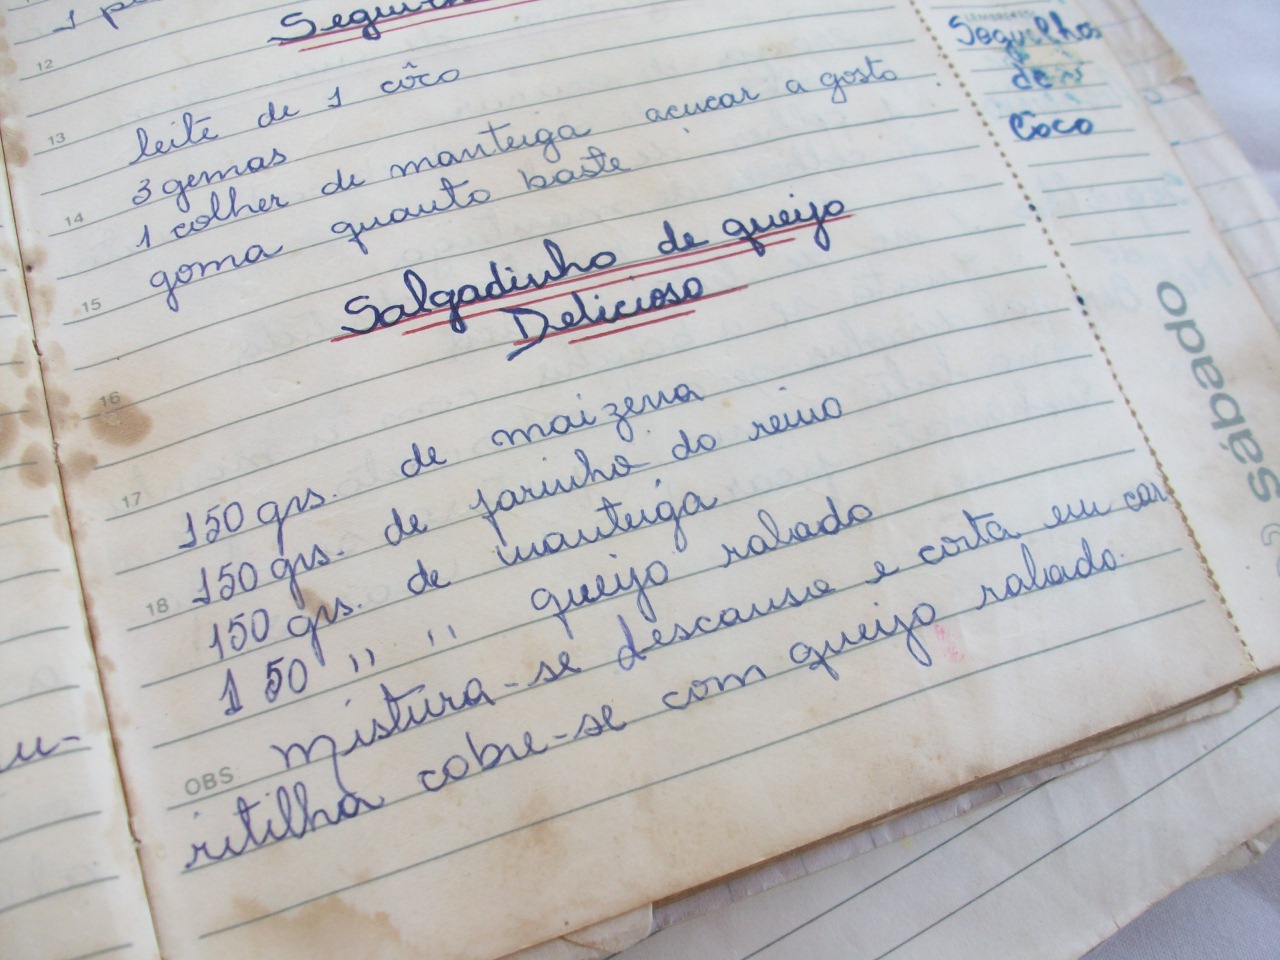 12
leite de 1 côco
13
3 gemas
1 colher de manteiga açucar a gosto
14
goma quanto baste
15
Salgadinho de queijo
Delicioso
16
17
150 grs. de maizena
150 grs. de farinha do reino
18
150 grs. de manteiga
150 " " queijo ralado
mistura-se descansa e corta em car
OBS
ritilha cobre-se com queijo ralado.
LEMBRETES
Sequilhos
de
Coco
Sábado